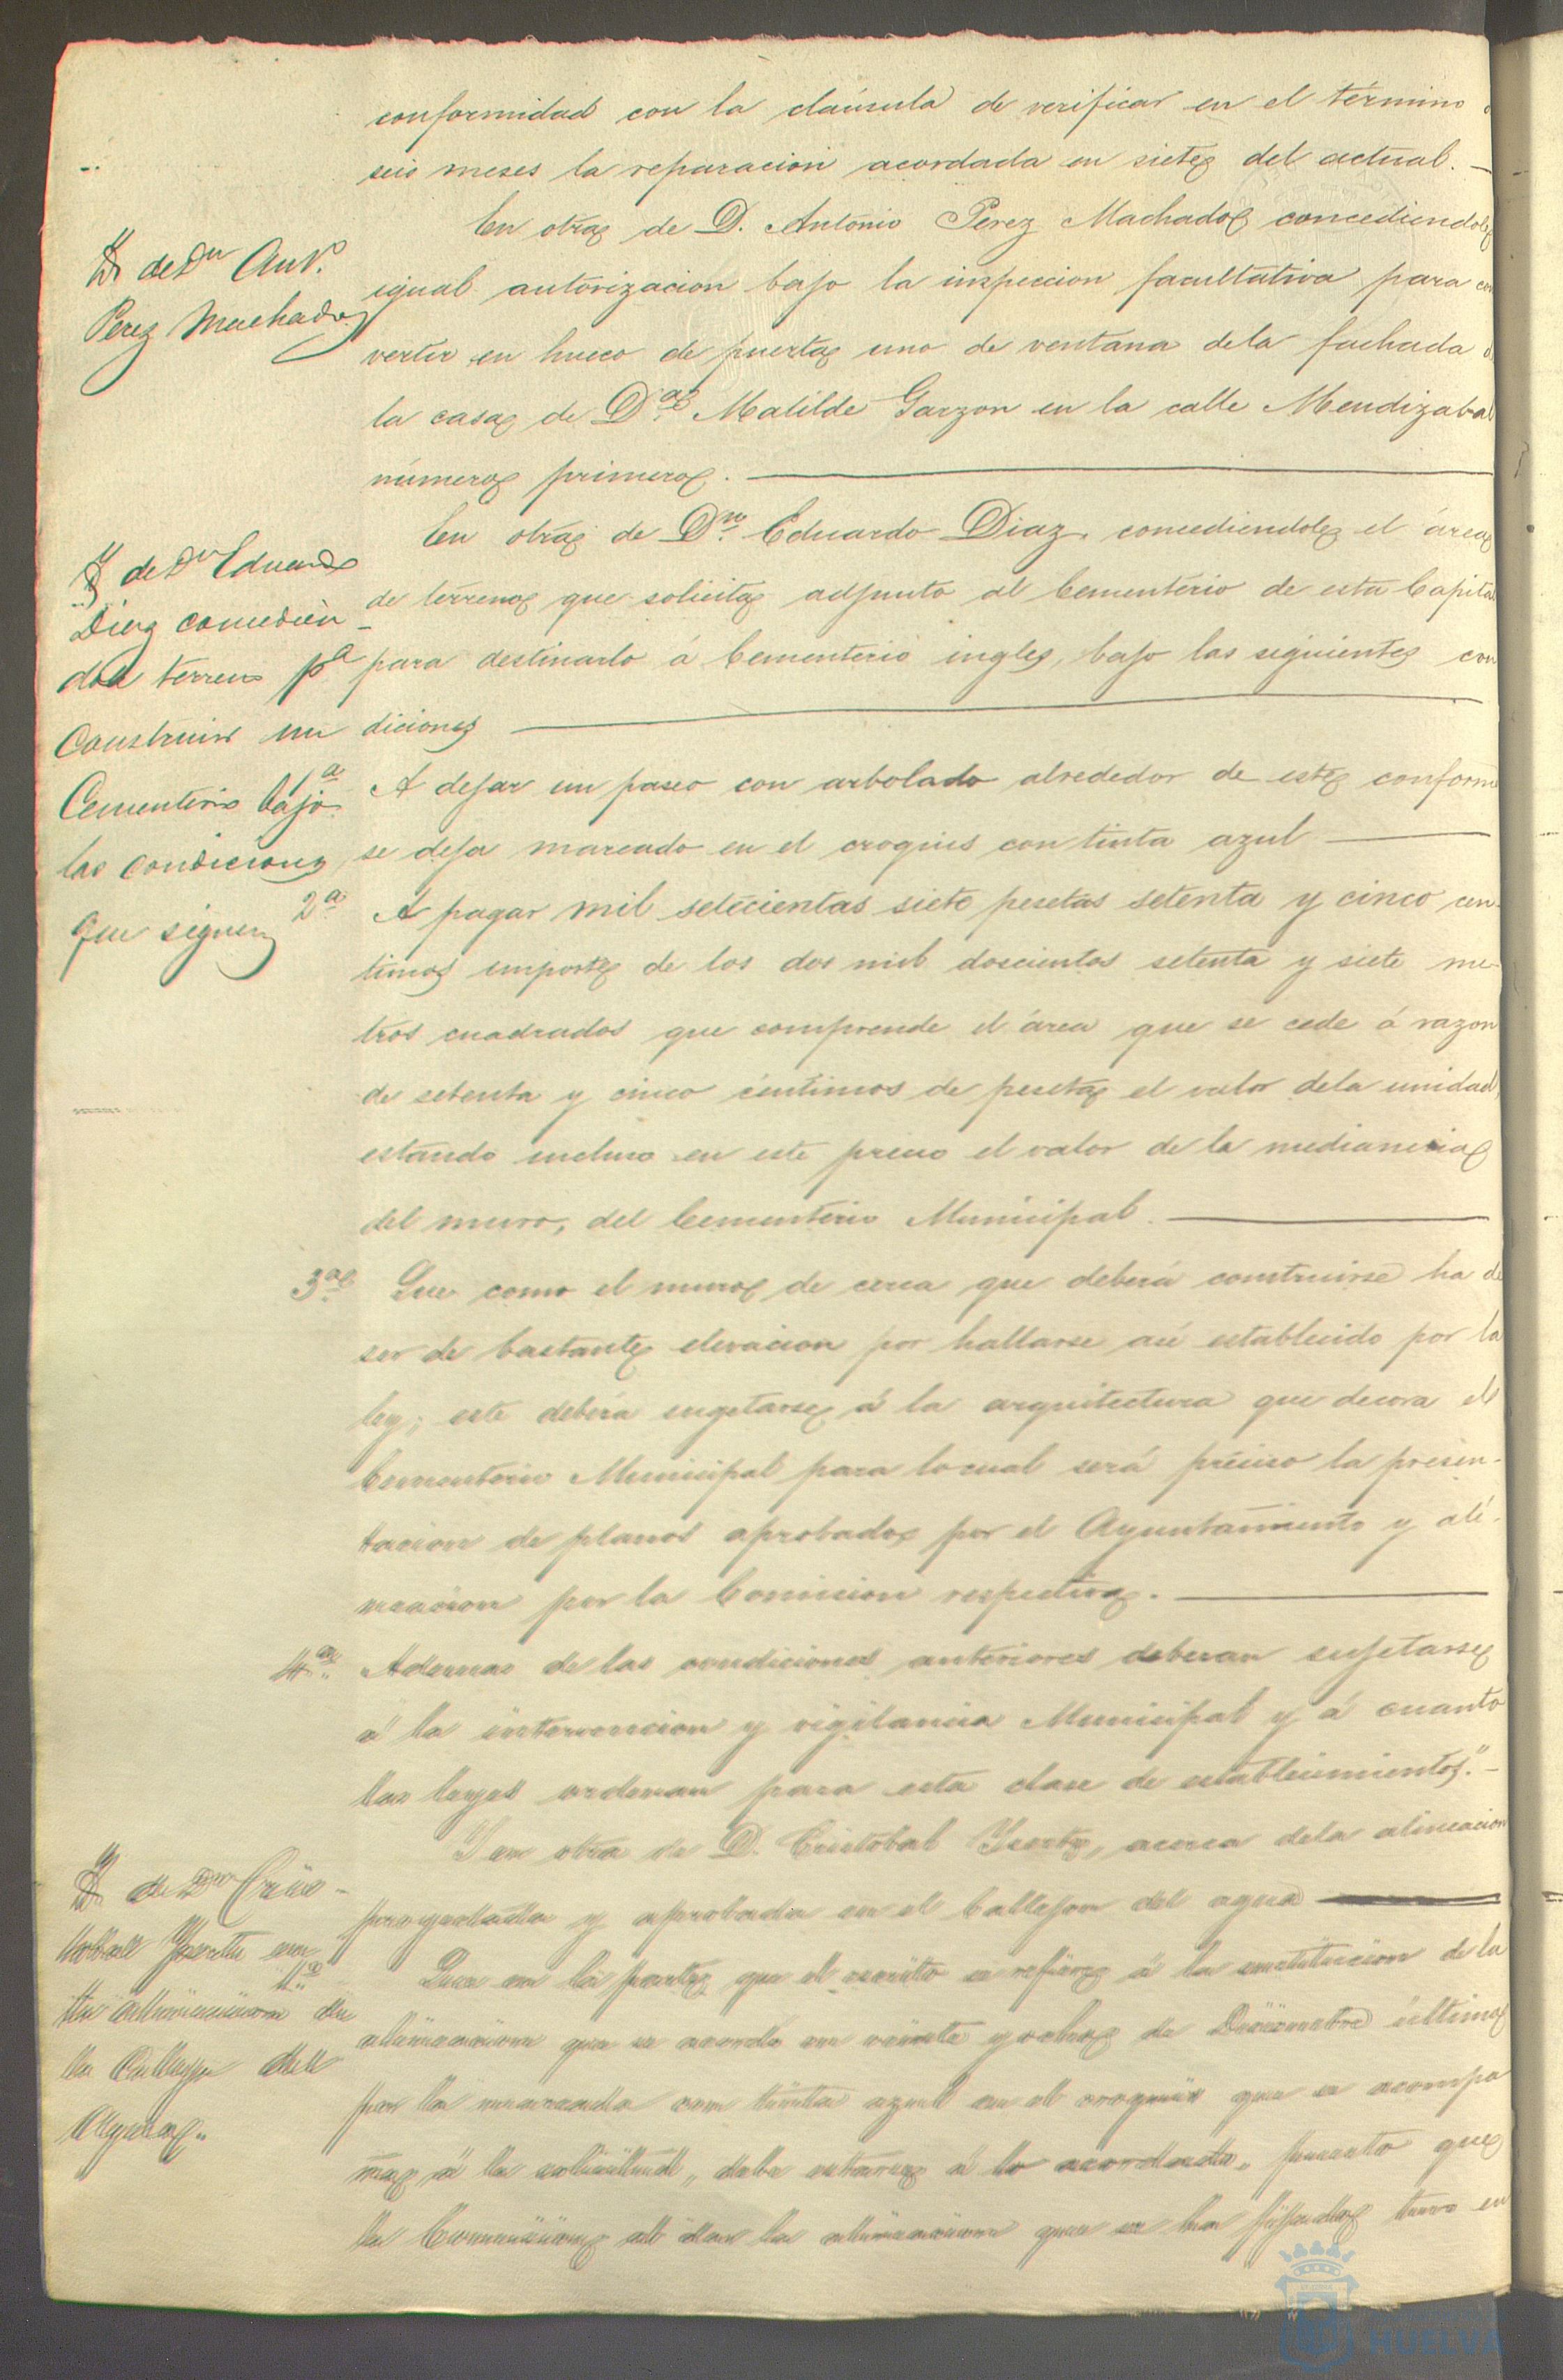 conformidad con la claúsula de verificar en el término
seis meses la reparacion acordada en siete del actual. —
En otra de D. Antonio Perez Machado concediendole
Yd de Dn Ant.
Perez Machado
igual autorizacion bajo la inspeccion facultativa para con
vertir en hueco de puerta uno de ventana dela fachada d
la casa de D.a Matilde Garzon en la calle Mendizabal
número primero. —
En otra de Dn. Eduardo Diaz, concediendole el área
Yd de Dn Eduardo
Diaz concedien
do terreno pa
Construir un
Cementerio bajo
las condiciones
que siguen
de terreno que solicita adjunto al Cementerio de esta Capital
para destinarlo á Cementerio ingles, bajo las siguientes con
diciones —
1a A dejar un paseo con arbolado alrededor de este conforme
se deja marcado en el croquis con tinta azul —
2a A pagar mil setecientas siete pesetas setenta y cinco cen-
timos importe de los dos mil doscientos setenta y siete me-
tros cuadrados que comprende el área que se cede á razon
de setenta y cinco céntimos de peseta el valor dela unidad,
estando incluso en este precio el valor de la medianeria
del muro, del Cementerio Municipal. —
3a Que como el muro de cerca que deberá construirse ha de
ser de bastante elevacion por hallarse asi establecido por la
ley; este deberá sugetarse á la arquitectura que decora el
Cementerio Municipal para locual será preciso la presen-
tacion de planos aprobados por el Ayuntamiento y ali-
neacion por la Comision respectiva. —
4a Ademas de las condiciones anteriores deberan sujetarse
á la intervencion y vigilancia Municipal y á cuanto
las leyes ordenan para esta clase de establecimientos." —
Y en otra de D. Cristobal Ysorta, acerca dela alineacion
Yd de Dn Cris-
tobal Ysorta en
la alineacion de
la Calleja del
Agua.
proyectada y aprobada en el Callejon del agua —
1a Que en la parte que el escrito se refiere á la sustitucion de la
alineacion que se acordo en veinte y ocho de Diciembre último
por la marcada con tinta azul en el croquis que se acompa
ña á la solicitud, debe estarse á lo acordado, puesto que
la Comision al dar la alineacion que se ha fijado tuvo en
HUELVA